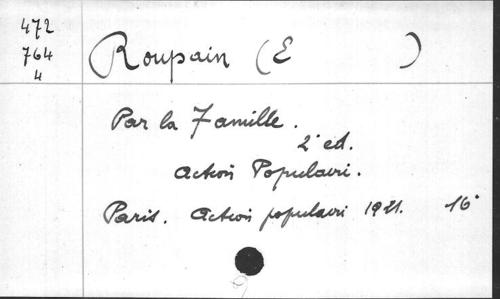 472
764
4
Roupain (E )
Par la Famille.
2° ed.
Action Populairi.
Paris. Action populairi 1921. 16°